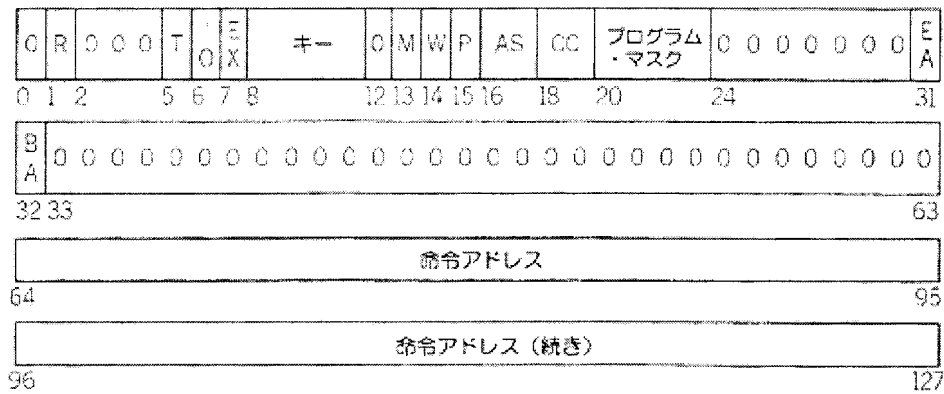 0 R 0 0 0 T I/O EX キー 0 M W P AS CC プログラム・マスク 0 0 0 0 0 0 0 EA
0 1 2 5 6 7 8 12 13 14 15 16 18 20 24 31
BA 0 0 0 0 0 0 0 0 0 0 0 0 0 0 0 0 0 0 0 0 0 0 0 0 0 0 0 0 0 0 0
32 33 63
命令アドレス
64 95
命令アドレス（続き）
96 127